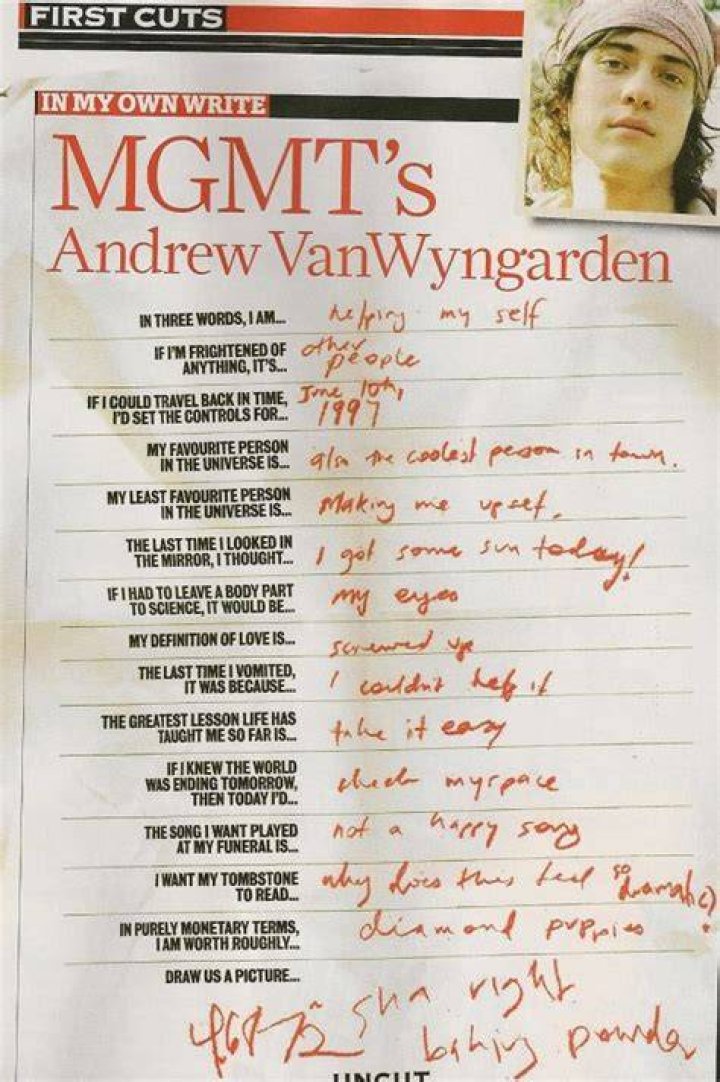 FIRST CUTS
IN MY OWN WRITE
MGMT's
Andrew VanWyngarden
IN THREE WORDS, I AM... helping my self
IF I'M FRIGHTENED OF
ANYTHING, IT'S... other people
IF I COULD TRAVEL BACK IN TIME,
I'D SET THE CONTROLS FOR... June 10th, 1997
MY FAVOURITE PERSON
IN THE UNIVERSE IS... also the coolest person in town.
MY LEAST FAVOURITE PERSON
IN THE UNIVERSE IS... Making me upset.
THE LAST TIME I LOOKED IN
THE MIRROR, I THOUGHT... I got some sun today!
IF I HAD TO LEAVE A BODY PART
TO SCIENCE, IT WOULD BE... my eyes
MY DEFINITION OF LOVE IS... screwed up
THE LAST TIME I VOMITED,
IT WAS BECAUSE... I couldn't help it
THE GREATEST LESSON LIFE HAS
TAUGHT ME SO FAR IS... take it easy
IF I KNEW THE WORLD
WAS ENDING TOMORROW,
THEN TODAY I'D... check myspace
THE SONG I WANT PLAYED
AT MY FUNERAL IS... not a happy song
I WANT MY TOMBSTONE
TO READ... why does this feel so dramatic?
IN PURELY MONETARY TERMS,
I AM WORTH ROUGHLY... diamond puppies
DRAW US A PICTURE...
sha right
baking powder
UNCUT